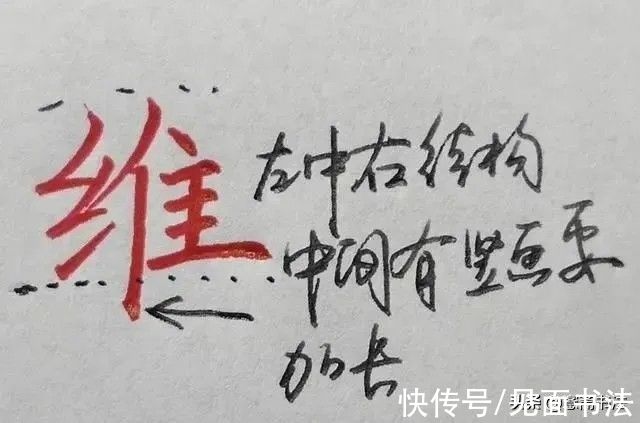 维
左中右结构
中间有竖画要
加长
快传号/见面书法